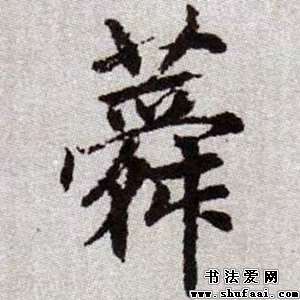 蕣
书法爱网
www.shufaai.com